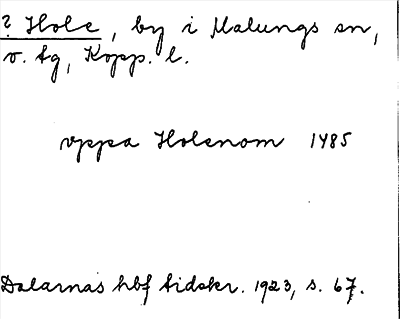 ? Hole, by i Malungs sn,
v. tg, Kopp. l.
vppa Holenom 1485
Dalarnas hbf tidskr. 1923, s. 67.